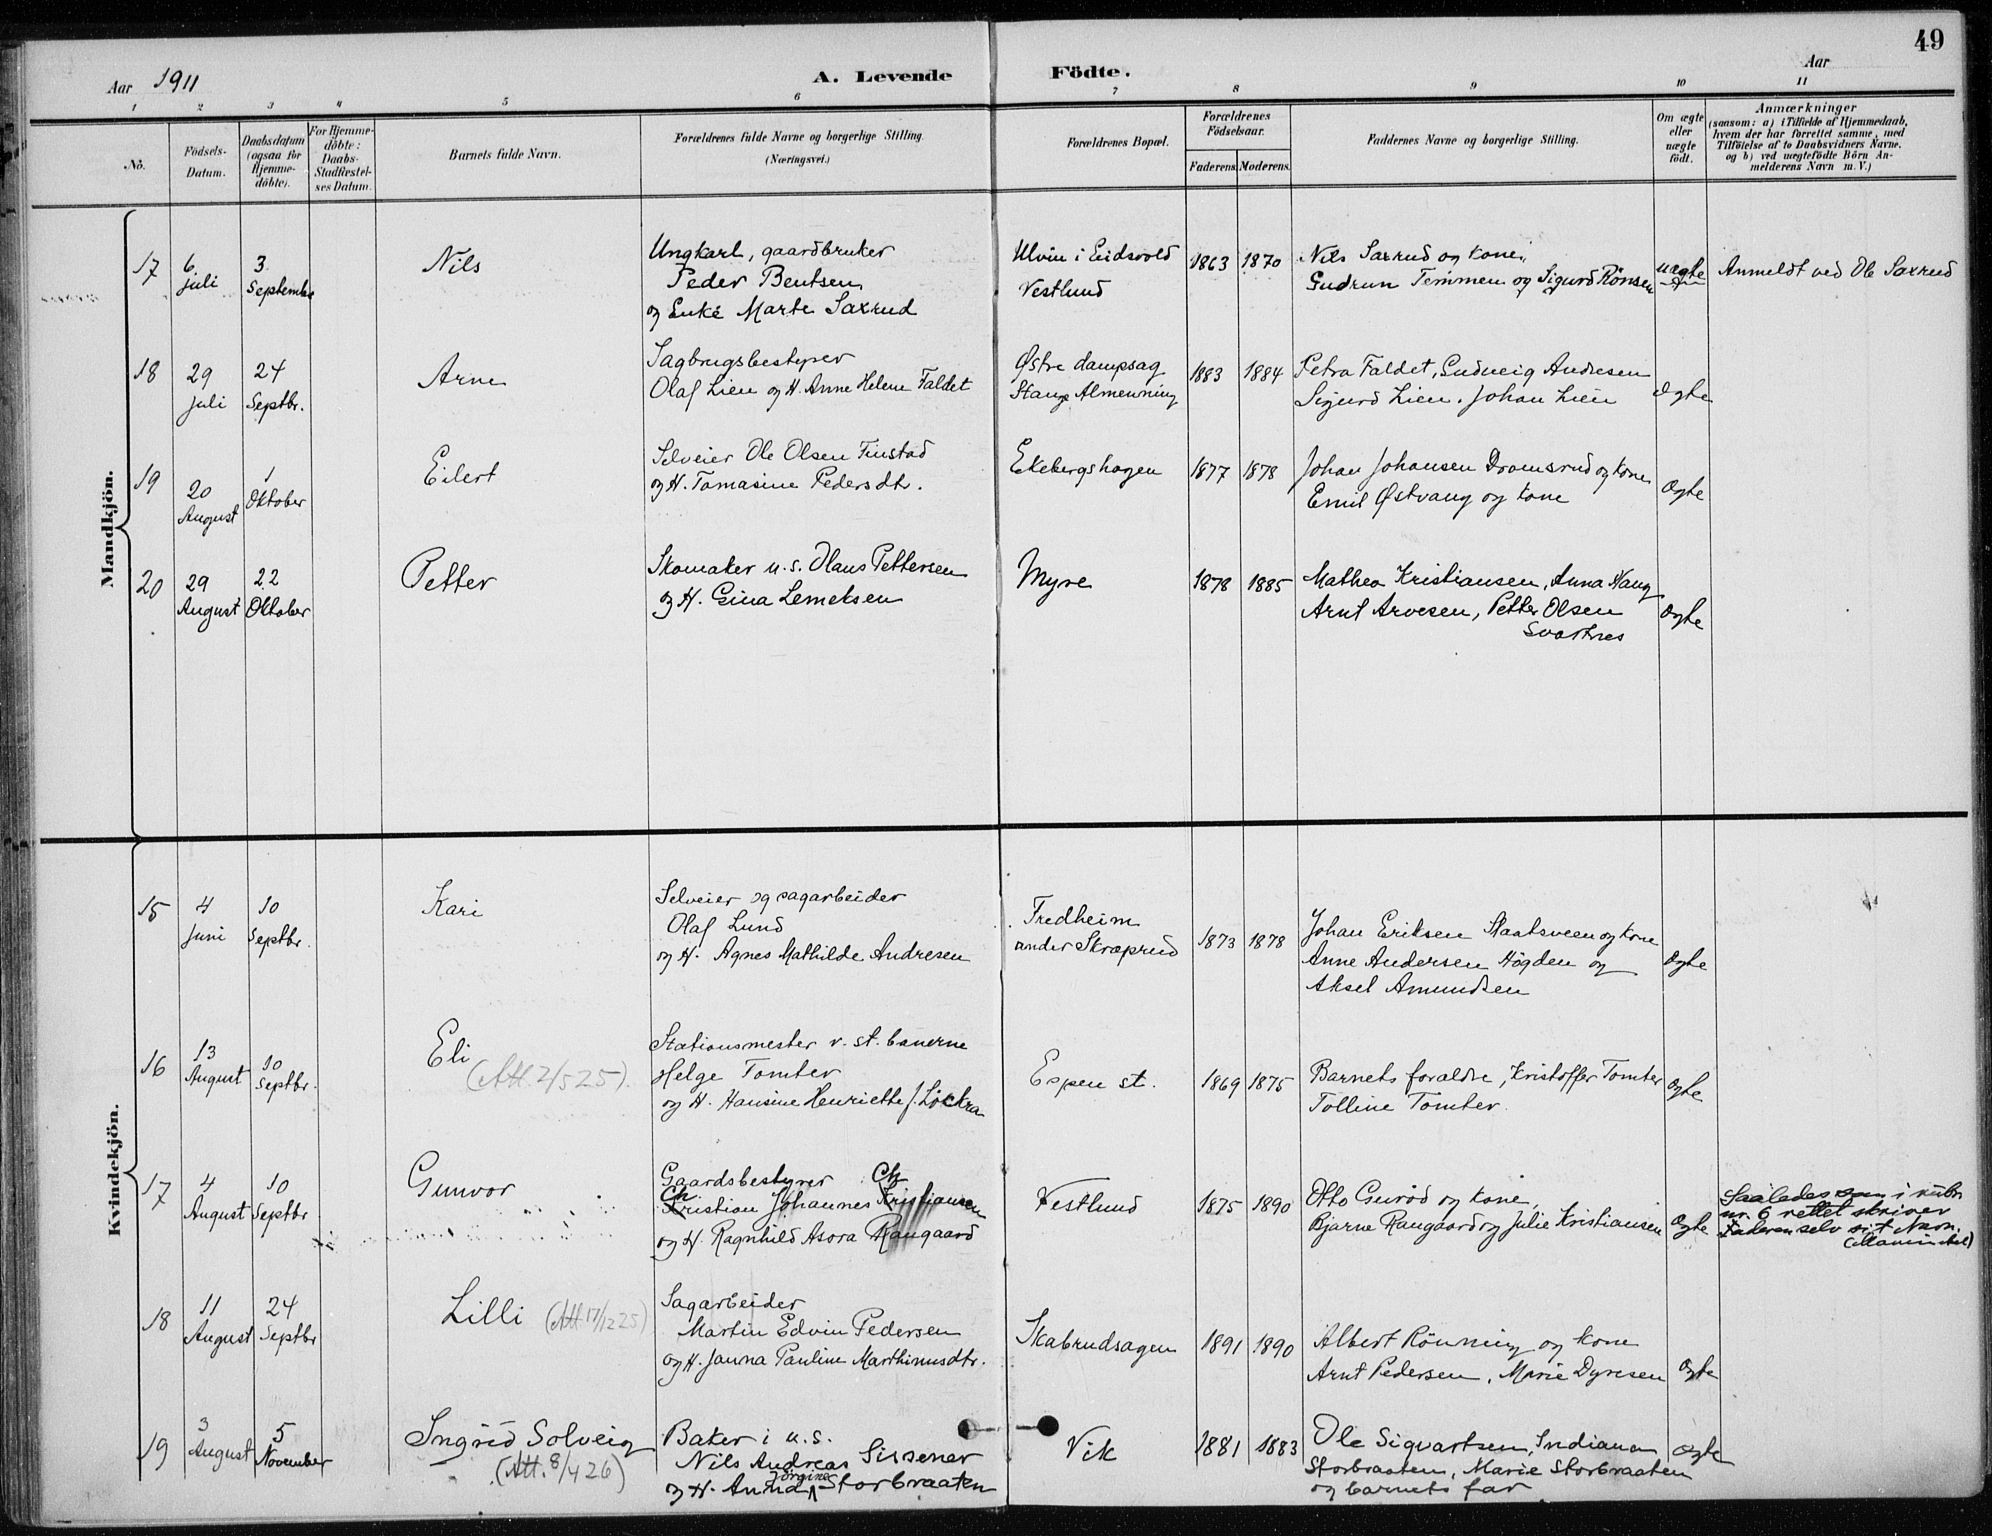 49
Aar 1911
A. Levende Födte.
Aar
1 2 3 4 5 6 7 8 9 10 11
No.
Födsels-Datum.
Daabsdatum (ogsaa for Hjemme-döbte).
For Hjemme-döbte: Daabs-Stadfestel-ses Datum.
Barnets fulde Navn.
Forældrenes fulde Navne og borgerlige Stilling. (Næringsvei.)
Forældrenes Bopæl.
Forældrenes Födselsaar.
Faderens. Moderens.
Faddernes Navne og borgerlige Stilling.
Om ægte eller uægte födt.
Anmærkninger
(saasom: a) i Tilfælde af Hjemmedaab,
hvem der har forrettet samme, med
Tilföielse af to Daabsvidners Navne.
og b) ved uægtefödte Börn An-
melderens Navn m. V.)
Mandkjön.
17 6 juli 3 September Nils
Ungkarl, gaardbruker
Peder Bentsen
og Enke Marte Saxrud
Ulvin i Eidsvold
Vestlund
1863 1870
Nils Saxrud og kone,
Gudrun Temmen og Sigurd Rönsen
uægte
Anmeldt ved Ole Saxrud
18 29 juli 24 Septbr. Arne
Sagbrugsbestyrer
Olaf Lien og H. Anne Helene Faldet
Østre dampsag
Stange Almenning
1883 1884
Petra Faldet, Gudveig Andresen
Sigurd Lien. Johan Lien
Ægte
19 20 August 1 Oktober Eilert
Selveier Ole Olsen Finstad
og H. Tomasine Pedersdtr.
Ekebergshagen
1877 1878
Johan Johansen Dromsrud og kone
Emil Østvang og kone
Ægte
20 29 August 22 Oktober Petter
Skomaker u.s. Olaus Pettersen
og H. Gina Lemeksen
Myre
1878 1885
Mathea Kristiansen, Anna Haug
Arnt Arvesen, Petter Olsen
Svartnes
Ægte
Kvindekjön.
15 4 juni 10 Septbr. Kari
Selveier og sagarbeider
Olaf Lund
og H. Agnes Mathilde Andresen
Fredheim
under Skræprud
1873 1878
Johan Eriksen Staatsveen og kone
Anne Andersen Högden og
Aksel Amundsen
Ægte
16 13 August 10 Septbr. Eli
(Att. 2/5 25).
Stationsmester v. st. banerne
Helge Tomter
og H. Hansine Henriette J. Löckra
Espen st.
1869 1875
Barnets forældre, Kristoffer Tomter
Tolline Tomter.
Ægte
17 4 August 10 Septbr Gunvor
Gaardsbestyrer Ch
Ch
Kristian Johannes Kristiansen
og H. Ragnhild Asora Raugaard
Vestlund
1875 1890
Otto Gueröd og kone,
Bjarne Raugaard og Julie Kristiansen
Ægte
Saaledes som i rubr.
nr. 6 rettet skriver
Faderen selv sit Navn.
18 11 August 24 Septbr Lilli (Att. 17/12 25)
Sagarbeider
Martin Edvin Pedersen
og H. Janna Pauline Marthinusdtr.
Skabrudsagen
1891 1890
Albert Rönning og kone
Arnt Pedersen, Marie Dyresen
Ægte
19 3 August 5 November Ingrid Solveig
(Att. 8/4 26)
Baker i u.s.
Nils Andreas Sissener
Jörgine
og H. Anna Storbraaten
Vik
1881 1883
Ole Sigvartsen, Indiana
Storbraaten, Marie Storbraaten
og barnets far
Ægte